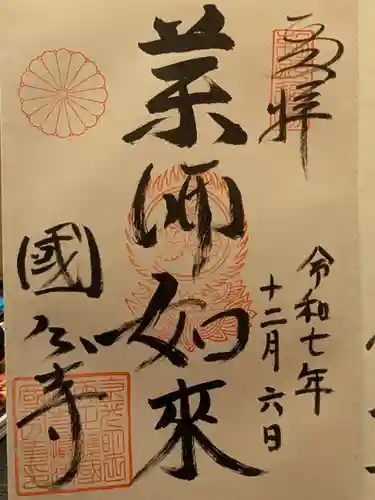 奉拝
令和七年
十二月六日
薬師如来
國分寺